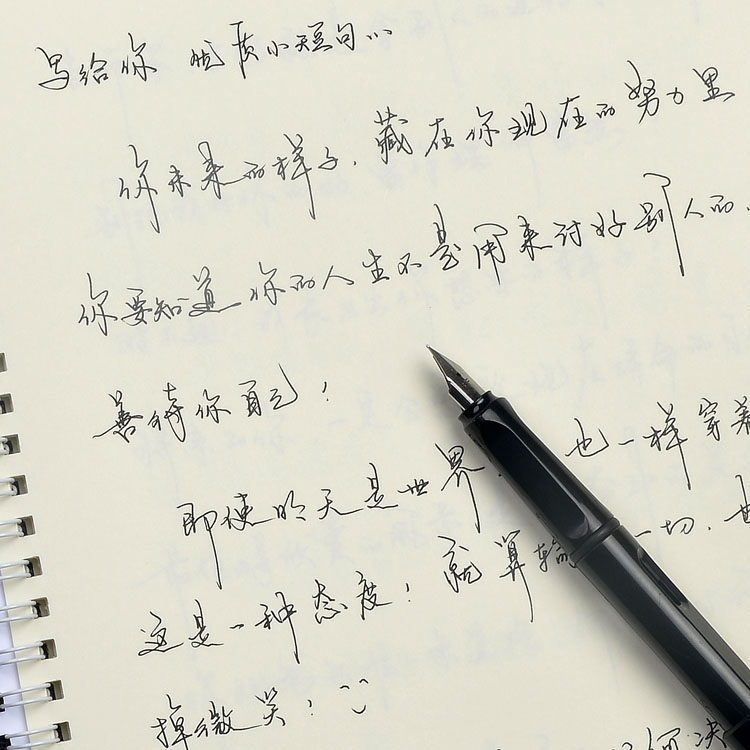 写给你 优质小短句
你未来的样子，藏在你现在的努力里
你要知道你的人生不是用来讨好别人的，
善待你自己！
即使明天是世界 也一样穿着
这是一种态度！就算输 一切，也
掉微笑！
何决